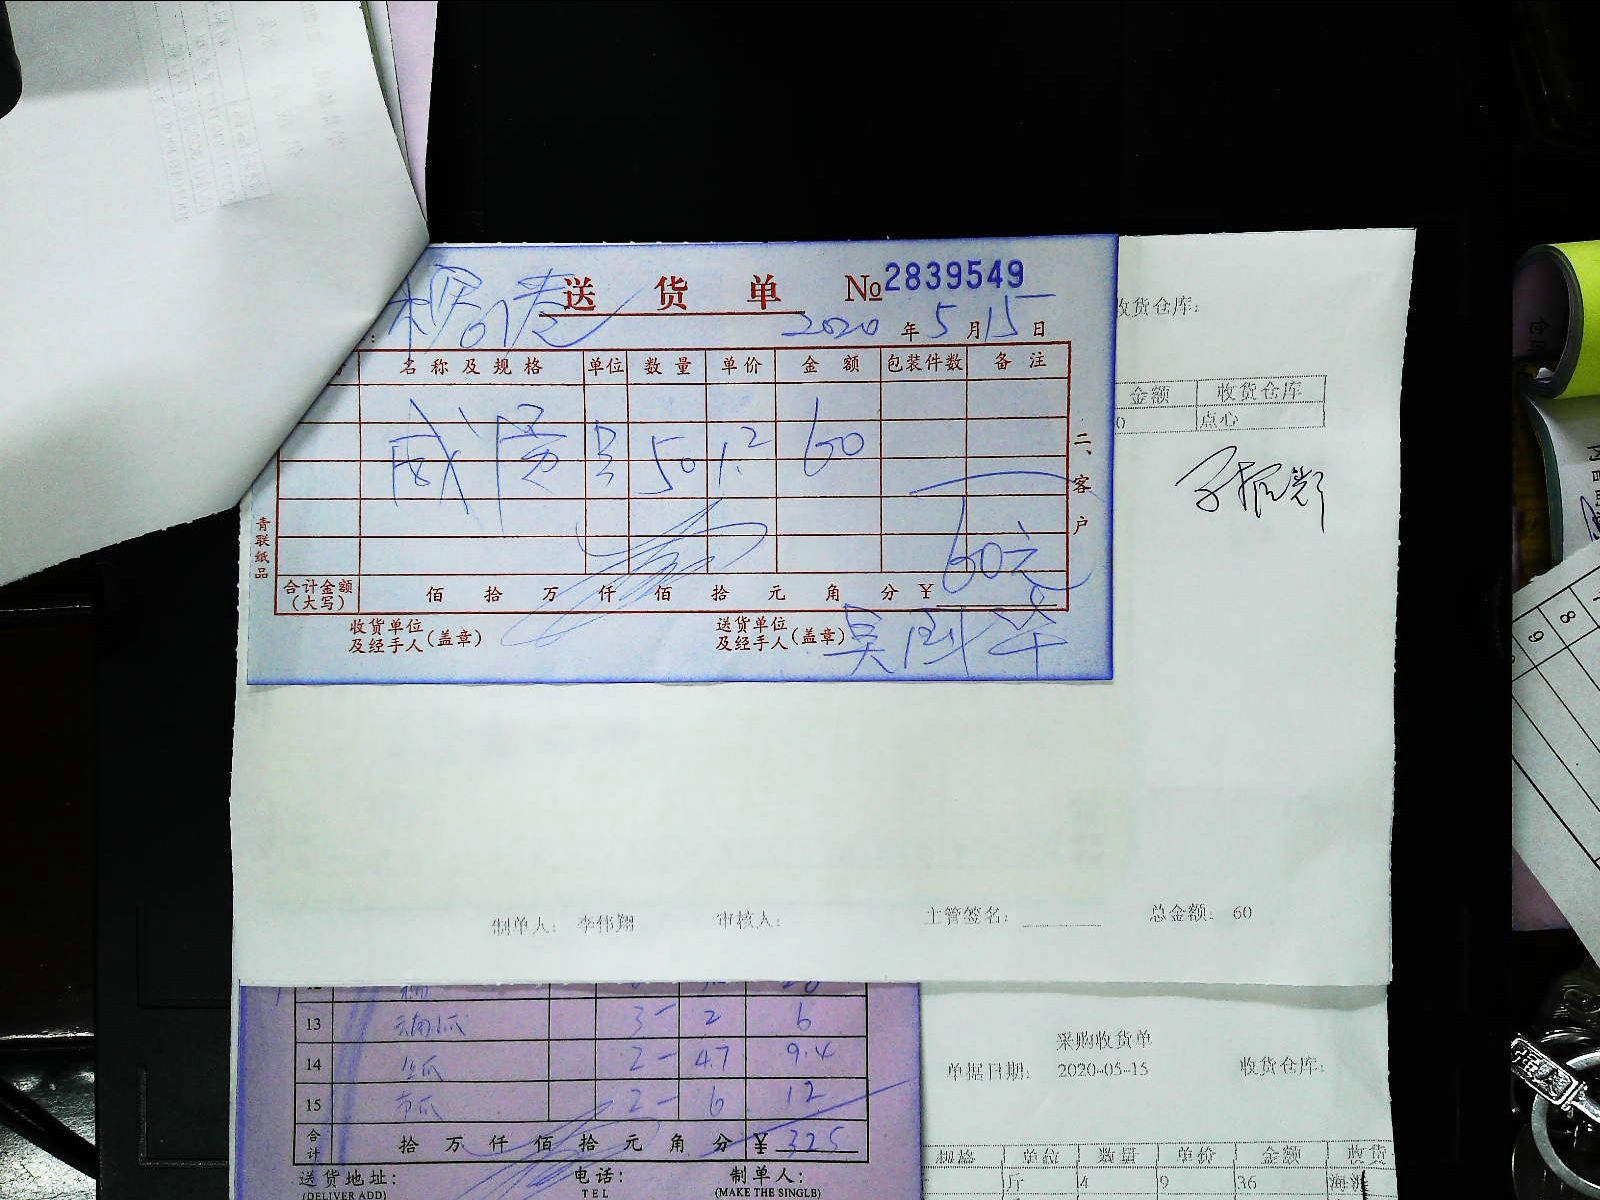 送 货 单 № 2839549
2020 年 5 月 15 日
名 称 及 规 格 单位 数 量 单 价 金 额 包装件数 备 注
咸蛋 50 1.2 60
60元
二、客户
青联纸品
合计金额(大写) 佰 拾 万 仟 佰 拾 元 角 分 ¥
收货单位及经手人(盖章) 送货单位及经手人(盖章) 吴国华
收货仓库:
金额 收货仓库
0 点心
制单人: 李伟翔 审核人: 主管签名: 总金额: 60
13 云南瓜 3 2 6
14 丝瓜 2 4.7 9.4
15 节瓜 2 6 12
合计 拾 万 仟 佰 拾 元 角 分 ¥ 325
送货地址: 电话: 制单人:
(DELIVER ADD) TEL (MAKE THE SINGLE)
采购收货单
单据日期: 2020-05-15 收货仓库:
规格 单位 数量 单价 金额 收货
斤 4 9 36 海派
8
9